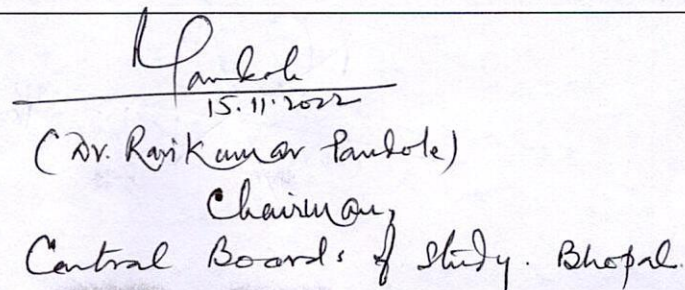 15.11.2022
(Dr. Ravi Kumar Pandole)
Chairman,
Central Boards of Study. Bhopal.